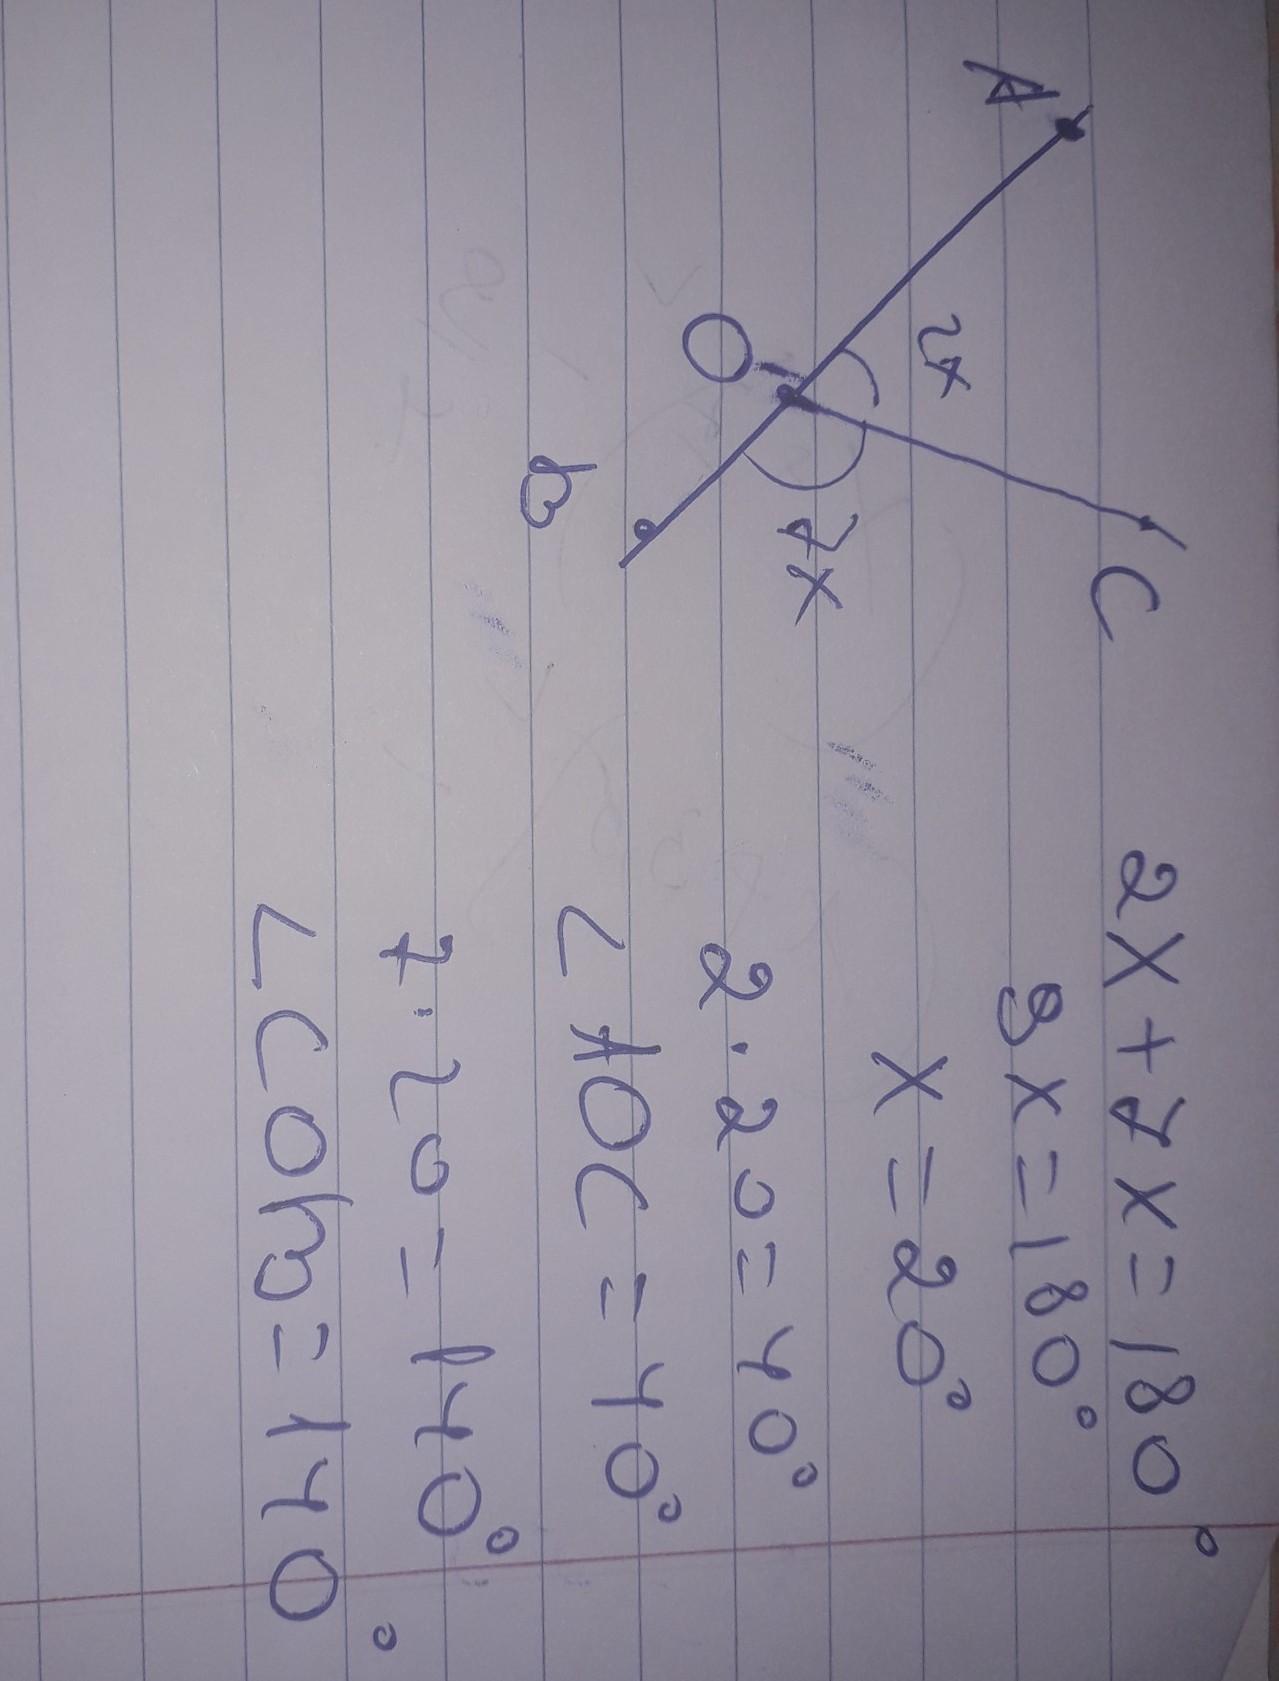 A
2x
C
O
7x
B
2x+7x=180°
9x=180°
x=20°
2·20=40°
∠AOC=40°
7·20=140°
∠COB=140°